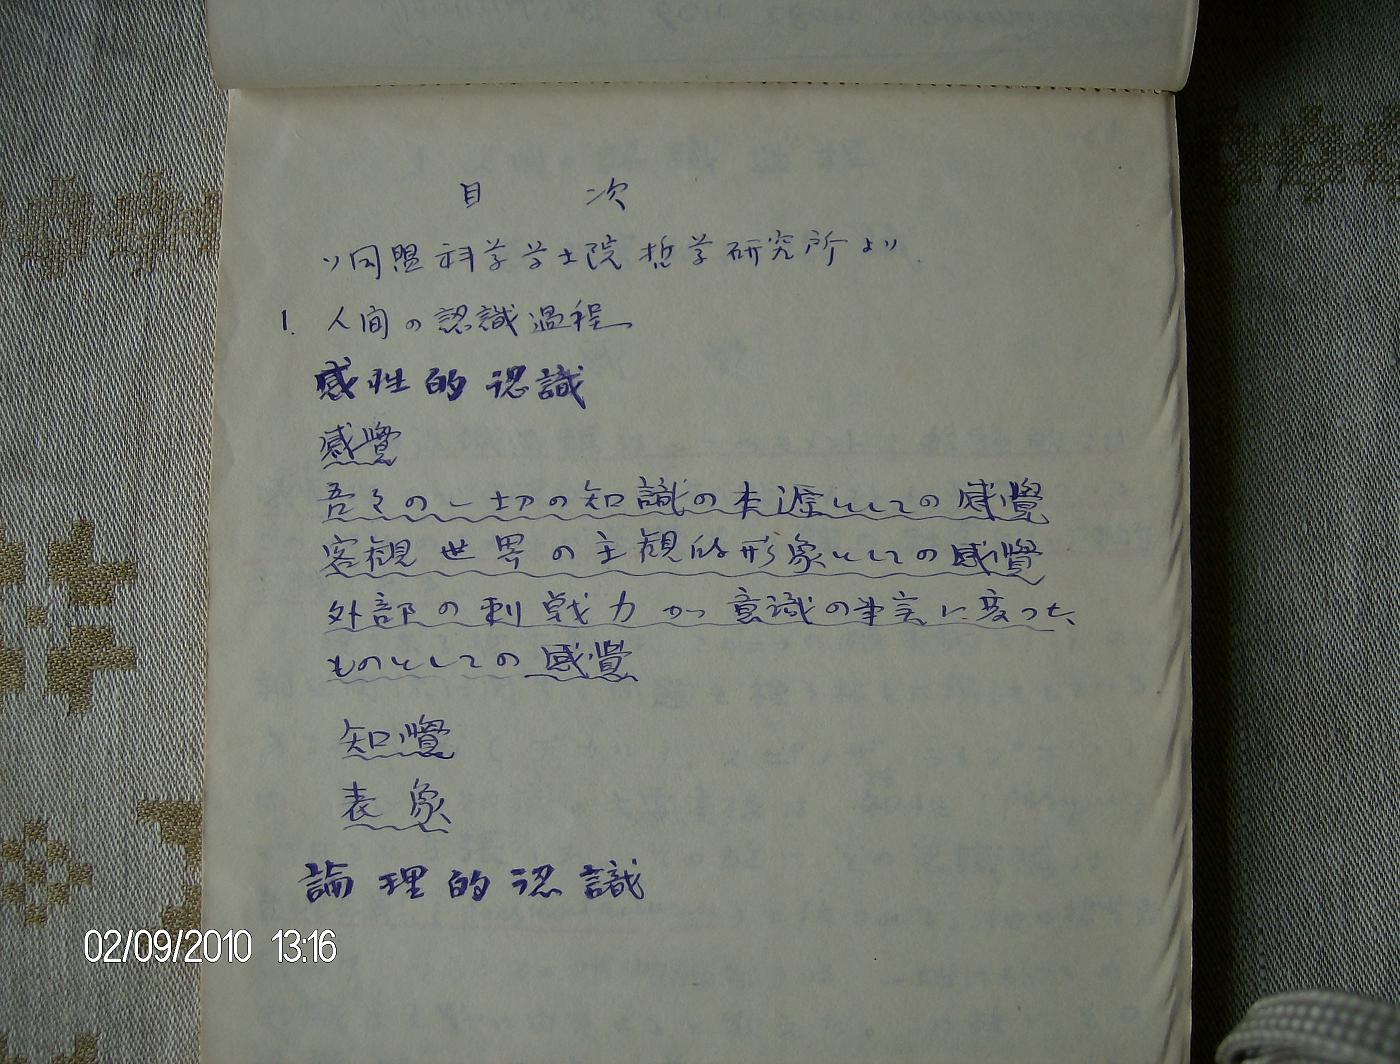 目 次
〃同盟科学学士院哲学研究所より〃
1. 人间の認識過程
感性的認識
感覺
吾々の一切の知識の本源としての感覺
客観世界の主観的形象としての感覺
外部の刺戟力が意識の事実に変った
ものとしての感覺
知覺
表象
論理的認識
02/09/2010 13:16